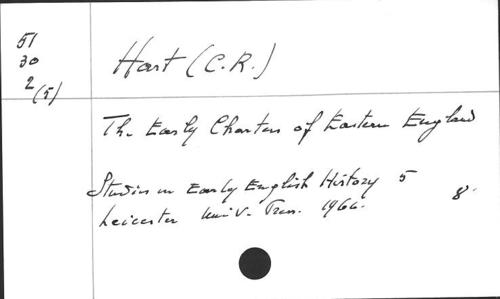 51
30
2(5)
Hart (C.R.)
The Early Charters of Eastern England
Studies in Early English History 5
8º
Leicester Univ. Press. 1966.